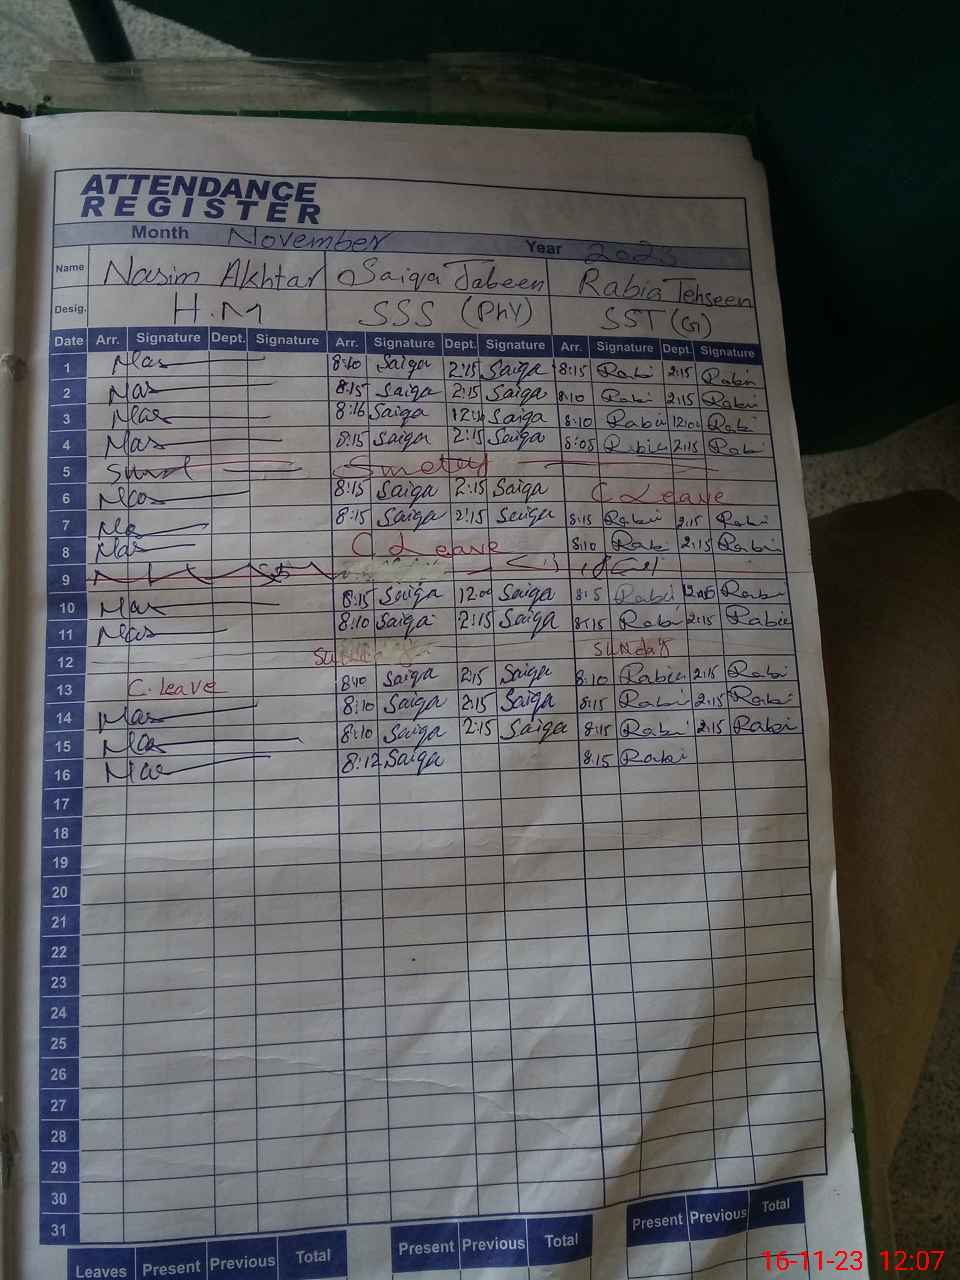 ATTENDANCE
REGISTER
Month November Year 2023
Name Nasim Akhtar Saiqa Jabeen Rabia Tehseen
Desig. H.M SSS (PHY) SST(G)
Date Arr. Signature Dept. Signature Arr. Signature Dept. Signature Arr. Signature Dept. Signature
1 Nas 8:10 Saiqa 2:15 Saiqa 8:15 Rabi 2:15 Rabi
2 Nas 8:15 Saiqa 2:15 Saiqa 8:10 Rabi 2:15 Rabi
3 Nas 8:16 Saiqa Saiqa 8:10 Rabi 12:00 Rabi
4 Nas 8:15 Saiqa 2:15 Saiqa 8:05 Rabi 2:15 Rabi
5
6 Nas 8:15 Saiqa 2:15 Saiqa C Leave
7 Na 8:15 Saiqa 2:15 Saiqa 8:15 Rabi 2:15 Rabi
8 Nas C Leave 8:10 Rabi 2:15 Rabi
9
10 Nas 8:15 Saiqa 12:00 Saiqa Rabi Rabi
11 Nas 8:10 Saiqa 2:15 Saiqa 8:15 Rabi 2:15 Rabi
12 Sunday
13 C. leave Saiqa 2:15 Saiqa 8:10 Rabi 2:15 Rabi
14 Nas 8:10 Saiqa 2:15 Saiqa 8:15 Rabi 2:15 Rabi
15 Nas 8:10 Saiqa 2:15 Saiqa 8:15 Rabi 2:15 Rabi
16 Nas 8:12 Saiqa 8:15 Rabi
17
18
19
20
21
22
23
24
25
26
27
28
29
30
31
Leaves Present Previous Total Present Previous Total Present Previous Total
16-11-23 12:07